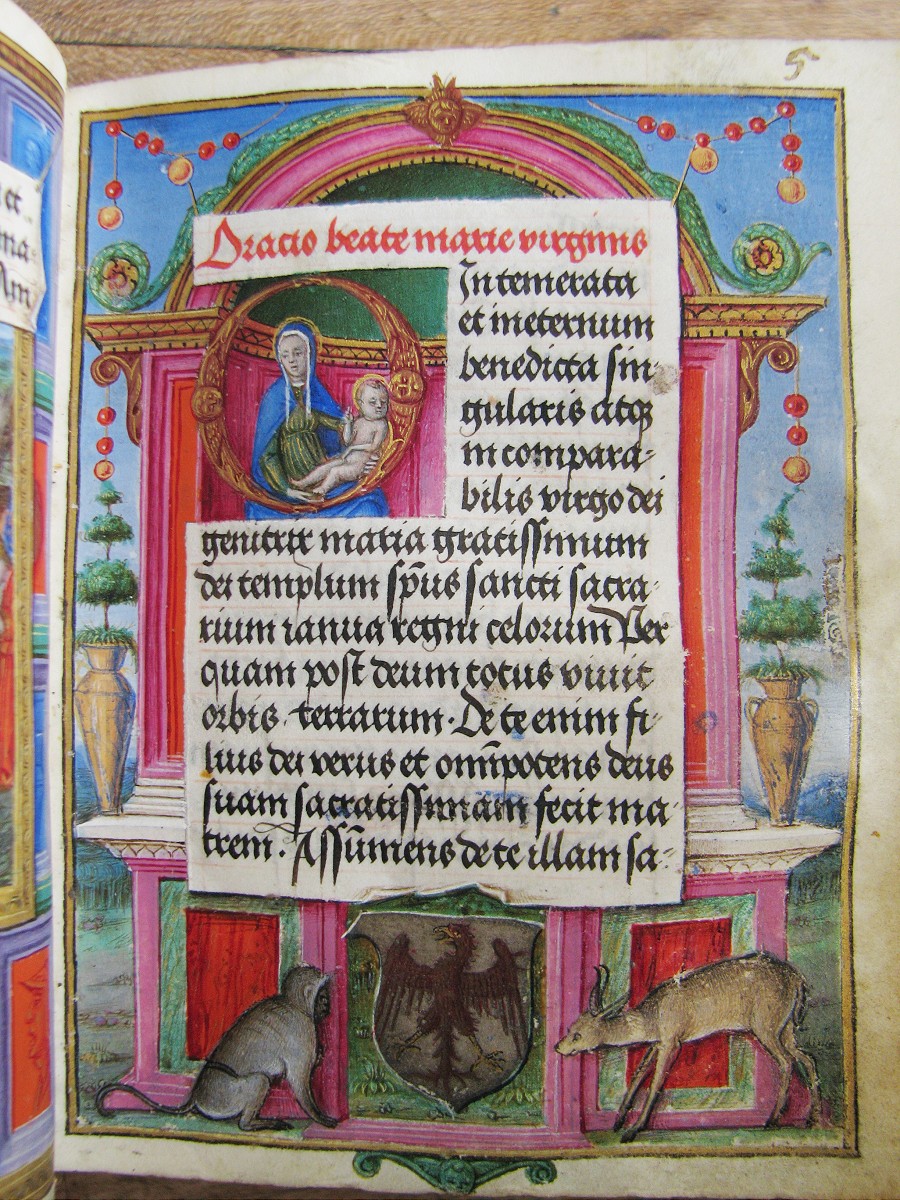 5
et
ma-
Am
Oracio beate marie virginis
Intemerata
et ineternum
benedicta sin-
gularis atqꝫ
incompara-
bilis virgo dei
genitrix maria gratissimum
dei templum sp̄us sancti sacra-
rium ianua regni celorum Per
quam post deum totus viuit
orbis terrarum. De te enim fi-
lius dei verus et omīpotens deus
suam sacratissimam fecit ma-
trem. Assūmens de te illam sa-